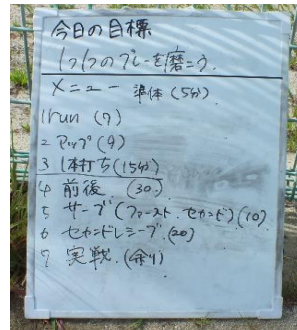 今日の目標
1つ1つのプレーを磨こう.
メニュー 準体(5分)
1 run (7)
2 アップ(9)
3 1本打ち(15分)
4 前後 (30)
5 サーブ(ファースト.セカンド)(10)
6 セカンドレシーブ.(20)
7 実戦.(余り)